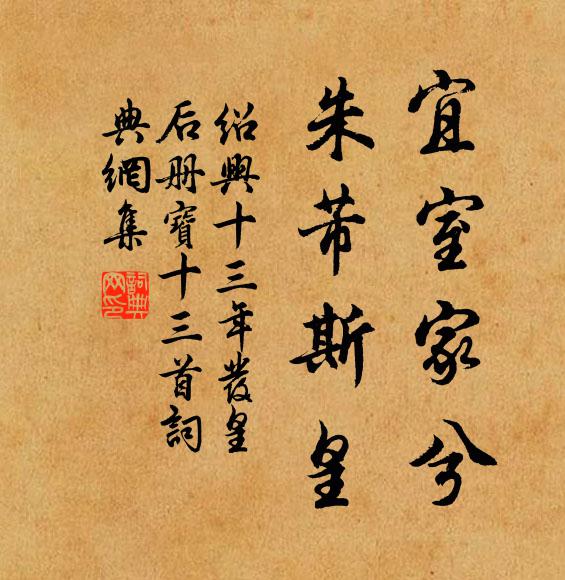 宜室家兮
朱芾斯皇
紹興十三年發皇
后册寶十三首詞
典網集
詞典
网印